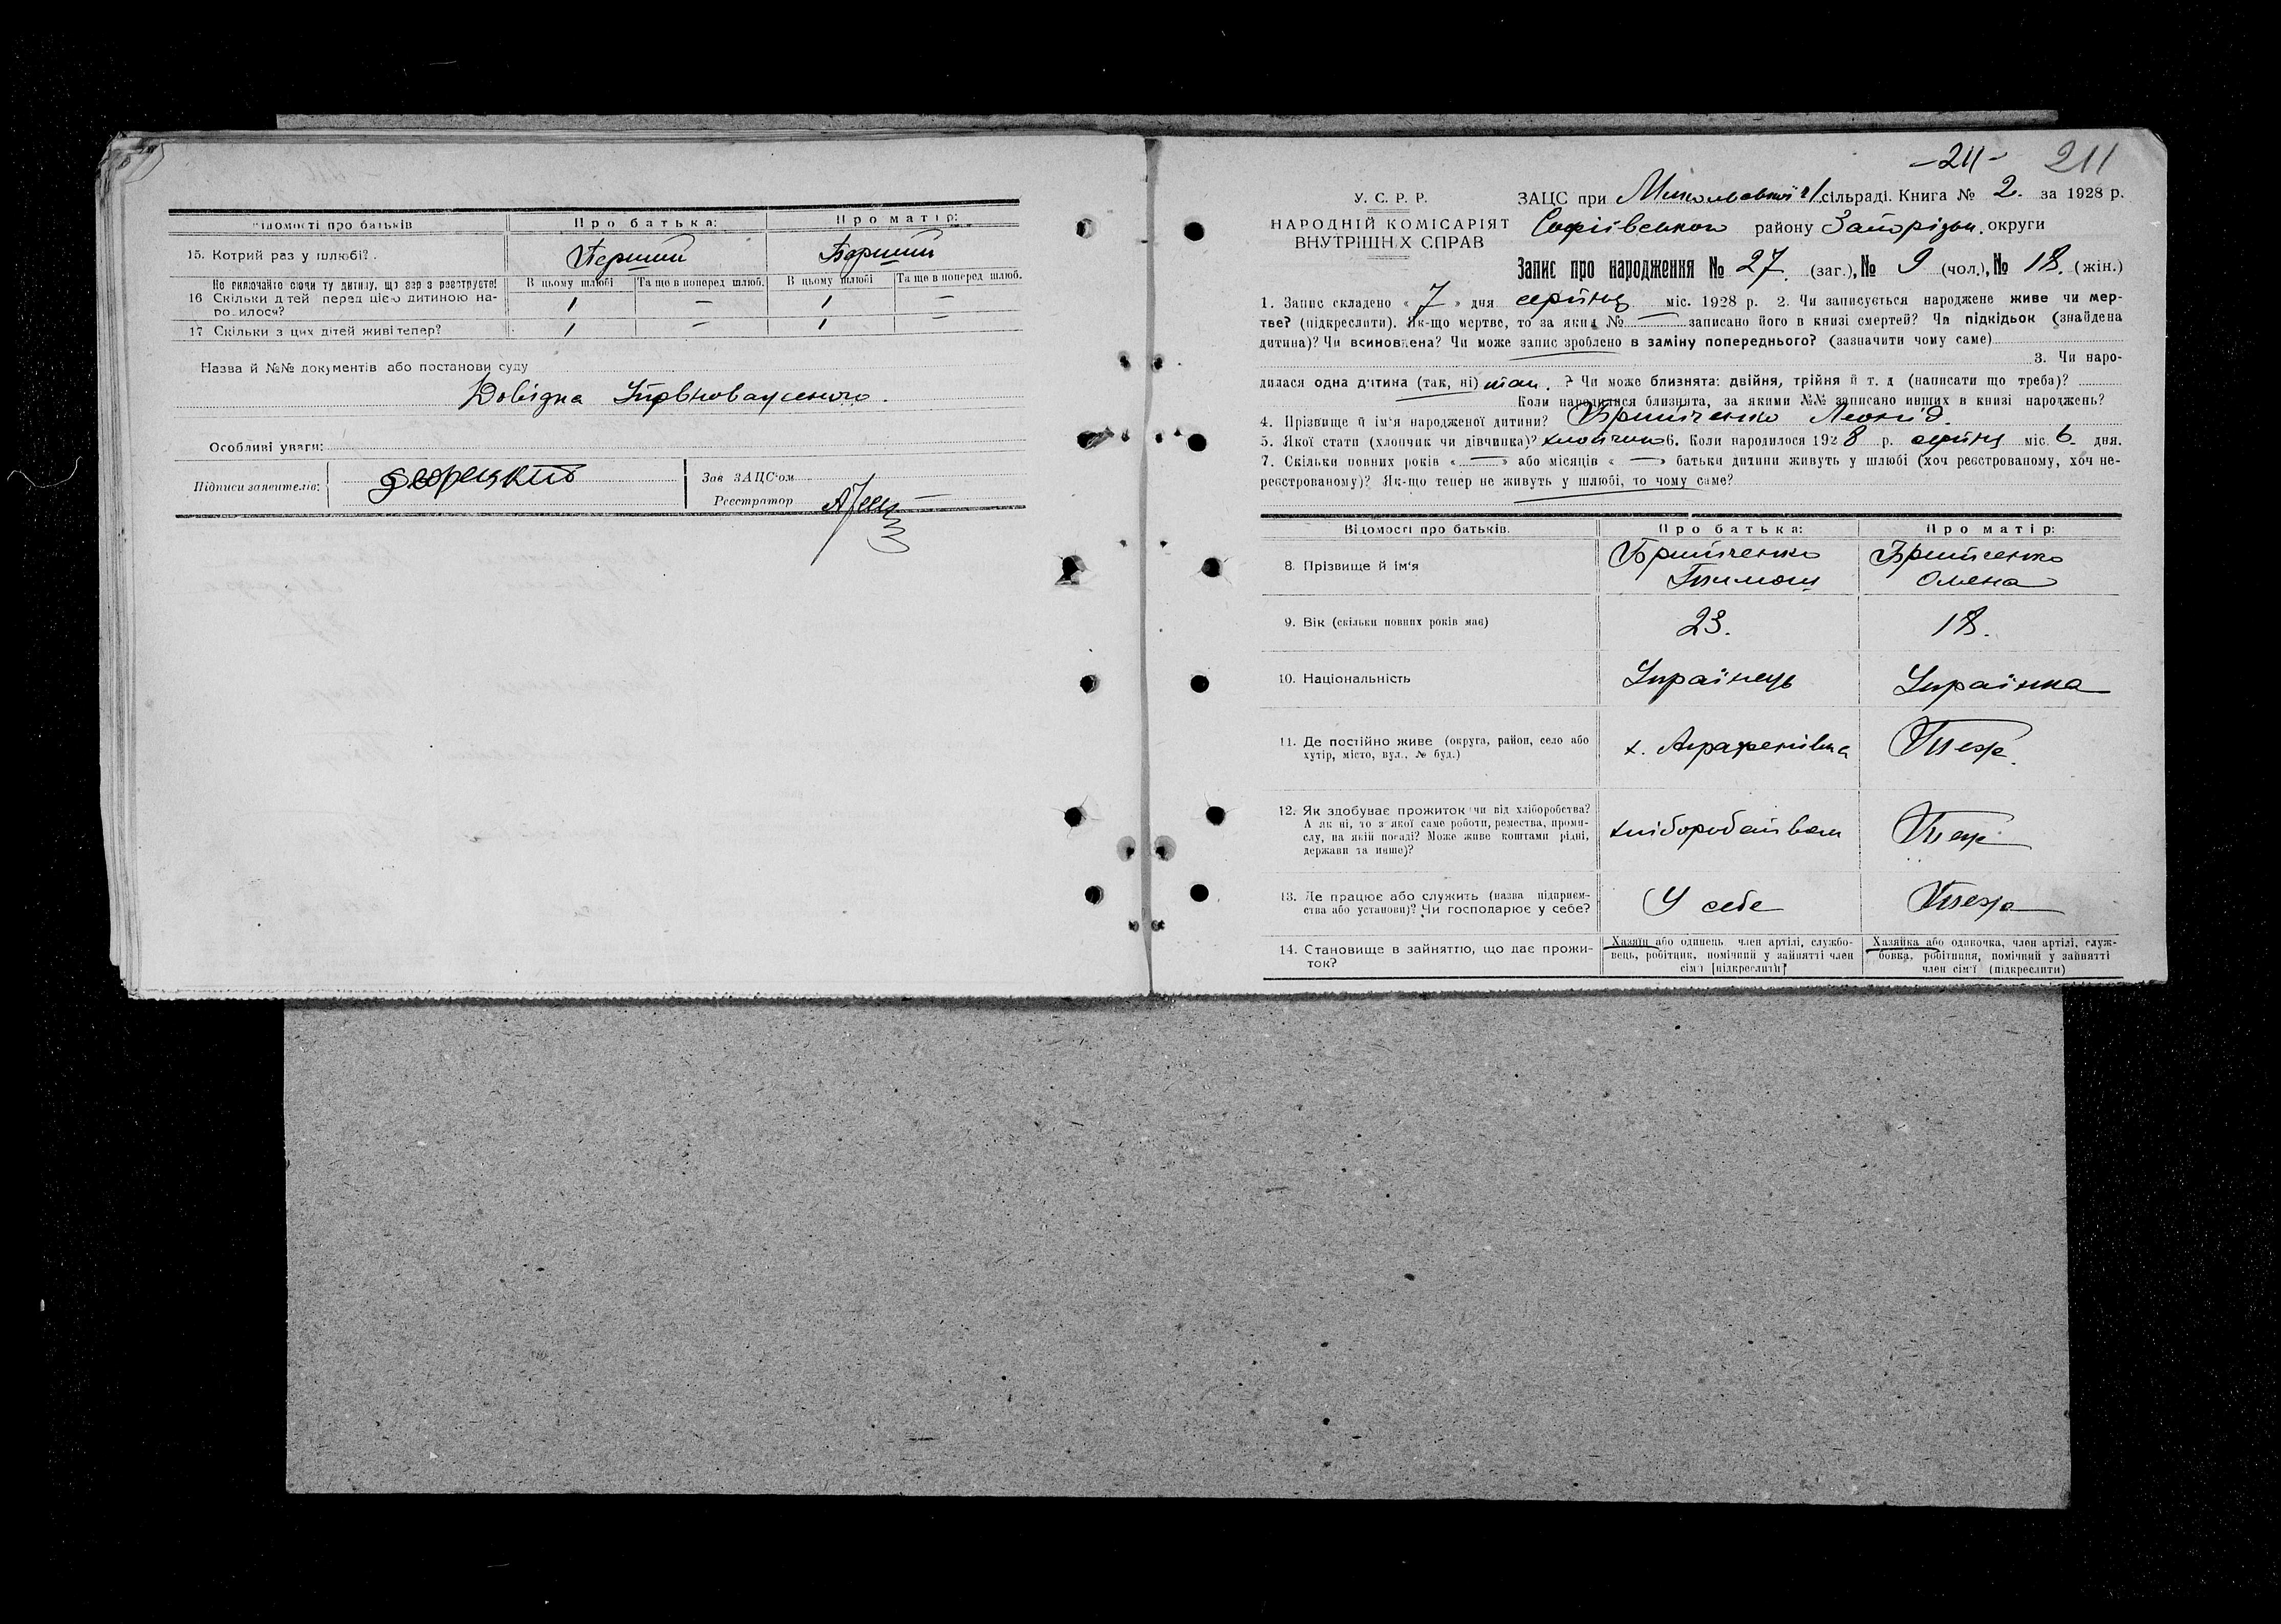 Відомості про батьків
Про батька:
Про матір:
15. Котрий раз у шлюбі?
Перший
Перший
Не включайте сюди ту дитину, що зараз реєструєте!
В цьому шлюбі
Та ще в поперед шлюб.
В цьому шлюбі
Та ще в поперед шлюб.
16 Скільки дітей перед цією дитиною на-
родилося?
1 — 1 —
17 Скільки з цих дітей живі тепер?
1 — 1 —
Назва й №№ документів або постанови суду
Довідка Упр
Особливі уваги:
Підписи заявителів:
Зав ЗАЦС'ом
Реєстратор
-211- 211
У. С. Р. Р.
НАРОДНІЙ КОМІСАРІЯТ
ВНУТРІШНІХ СПРАВ
ЗАЦС при Миколаївськ. сільраді. Книга № 2. за 1928 р.
Софіївського району Запорізьк. округи
Запис про народження № 27. (заг.), № 9 (чол.), № 18. (жін.)
1. Запис складено « 7 » дня серпня міс. 1928 р. 2. Чи записується народжене живе чи мер-
тве? (підкреслити). Як-що мертве, то за яким № — записано його в книзі смертей? Чи підкідьок (знайдена
дитина)? Чи всиновлена? Чи може запис зроблено в заміну попереднього? (зазначити чому саме)
3. Чи наро-
дилася одна дитина (так, ні) так. ? Чи може близнята: двійня, трійня й т. д (написати що треба)?
Коли народилися близнята, за якими №№ записано инших в книзі народжень?
4. Прізвище й ім'я народженої дитини? Леонід.
5. Якої стати (хлопчик чи дівчинка)? хлопчик 6. Коли народилося 1928 р. серпня міс. 6 дня.
7. Скільки повних років « — » або місяців « — » батьки дитини живуть у шлюбі (хоч реєстрованому, хоч не-
реєстрованому)? Як-що тепер не живуть у шлюбі, то чому саме?
Відомості про батьків.
Про батька:
Про матір:
8. Прізвище й ім'я
Тимош
Олена
9. Вік (скільки повних років має)
23.
18.
10. Національність
Українець
Українка
11. Де постійно живе (округа, район, село або
хутір, місто, вул., № буд.)
х. Аграфенівка
Теж
12. Як здобуває прожиток чи від хліборобства?
А як ні, то з якої саме роботи, ремества, проми-
слу, на якій посаді? Може живе коштами рідні,
держави та инше)?
хліборобством
Теж
13. Де працює або служить (назва підприєм-
ства або установи)? Чи господарює у себе?
У себе
Теж
14. Становище в зайняттю, що дає прожи-
ток?
Хазяїн або одинець член артілі, службо-
вець, робітник, помічний у зайнятті член
сім'ї [підкреслити]
Хазяйка або одиночка, член артілі, служ-
бовка, робітниця, помічний у зайнятті
член сім'ї (підкреслити)